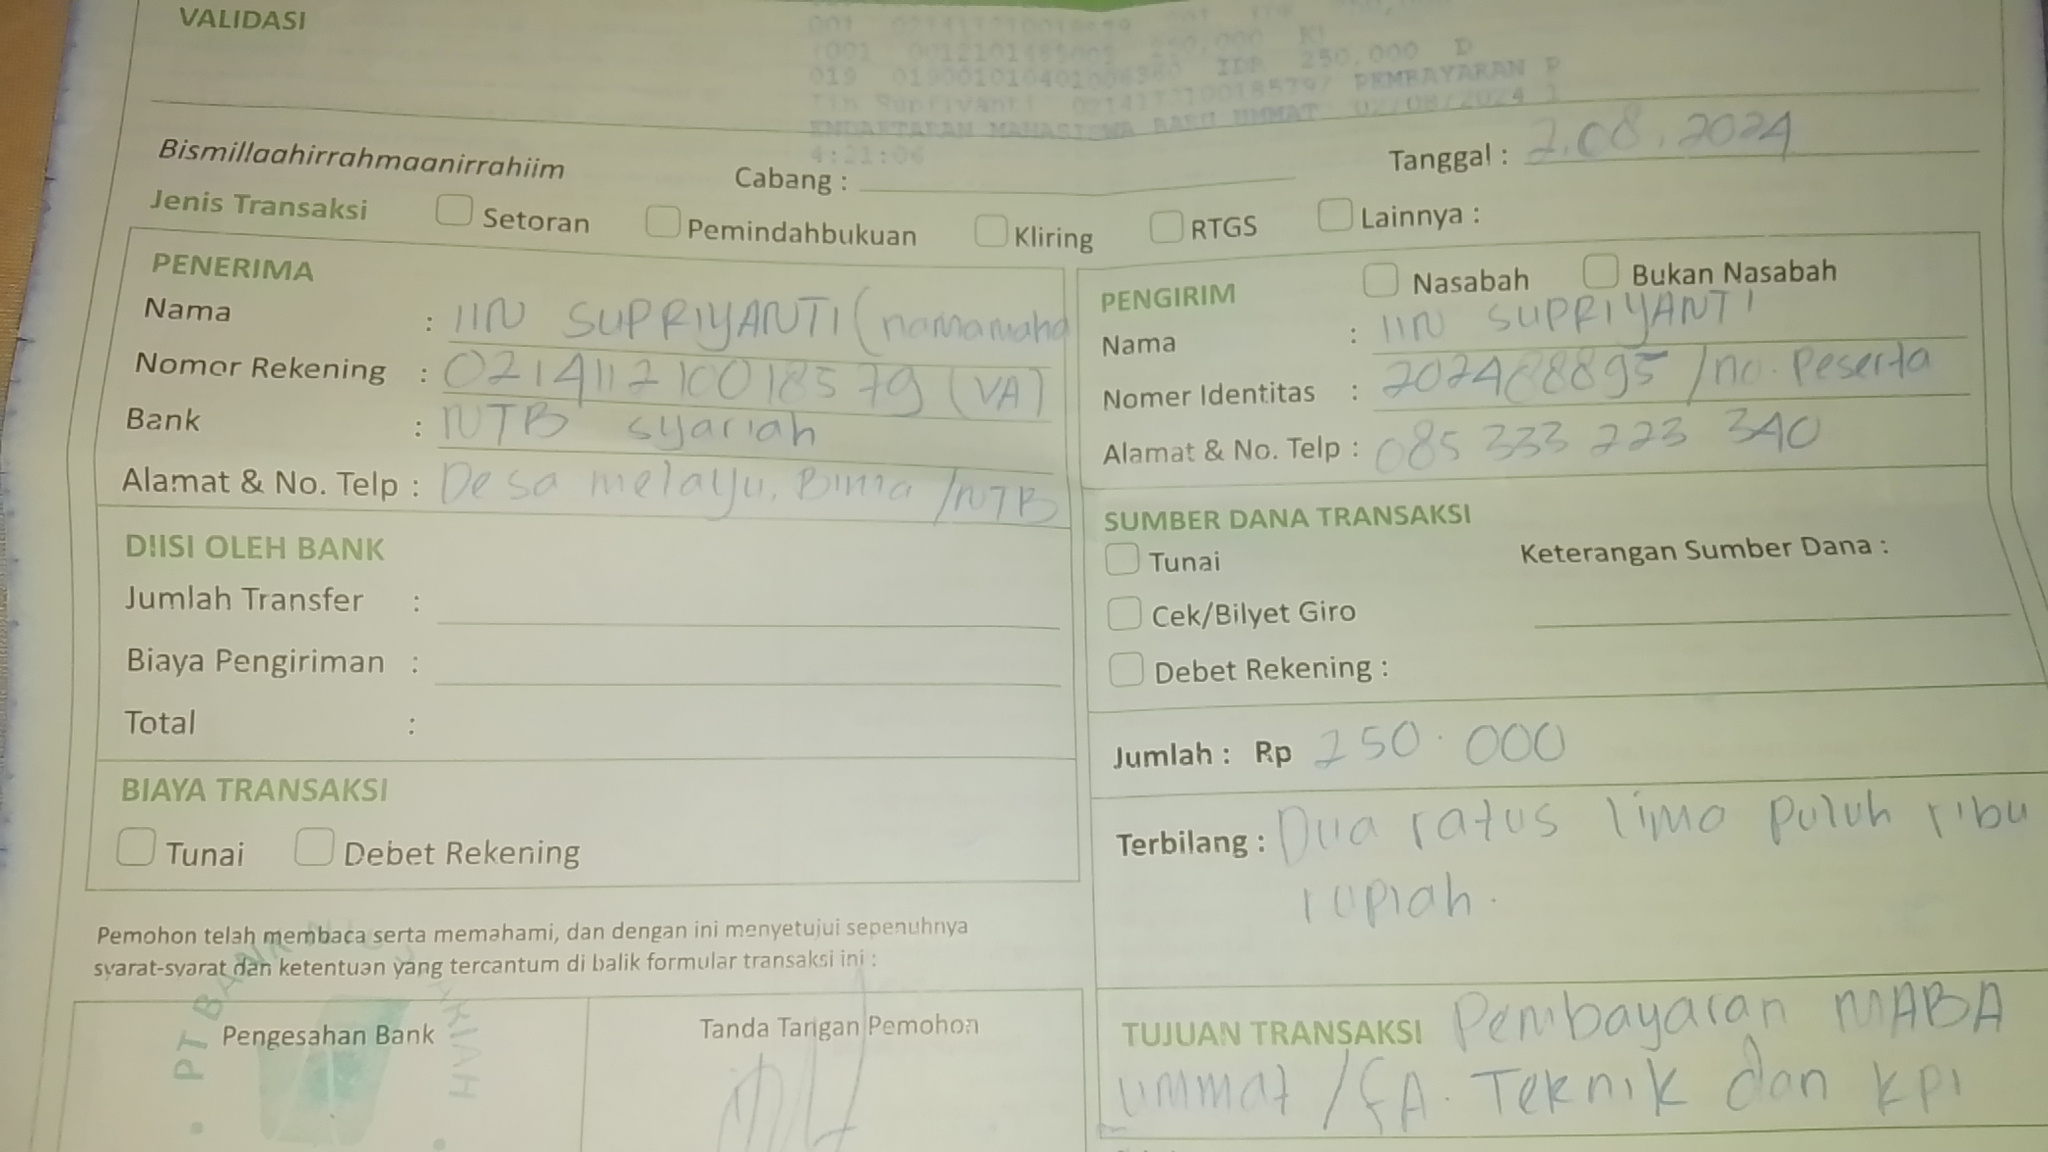 VALIDASI
250,000
019 IDR 250,000 D
PEMBAYARAN P
MAHASISWA BARU UMMAT 02/08/2024 1
4:21:06
Bismillaahirrahmaanirrahiim
Cabang :
Tanggal : 2.08.2024
Jenis Transaksi Setoran Pemindahbukuan Kliring RTGS Lainnya :
PENERIMA
Nama : IIN SUPRIYANTI (namamaha
Nomor Rekening : 021411210018579 (VA)
Bank : NTB syariah
Alamat & No. Telp : Desa melayu, Bima /NTB
PENGIRIM Nasabah Bukan Nasabah
Nama : IIN SUPRIYANTI
Nomer Identitas : 202488895 /no. Peserta
Alamat & No. Telp : 085 333 223 340
DIISI OLEH BANK
Jumlah Transfer :
Biaya Pengiriman :
Total :
SUMBER DANA TRANSAKSI
Tunai
Keterangan Sumber Dana :
Cek/Bilyet Giro
Debet Rekening :
BIAYA TRANSAKSI
Tunai Debet Rekening
Jumlah : Rp 250.000
Terbilang : Dua ratus lima puluh ribu
rupiah.
Pemohon telah membaca serta memahami, dan dengan ini menyetujui sepenuhnya
syarat-syarat dan ketentuan yang tercantum di balik formular transaksi ini :
Pengesahan Bank
PT BANK NTB SYARIAH
Tanda Tangan Pemohon
TUJUAN TRANSAKSI Pembayaran MABA
ummat /FA. Teknik dan KPI